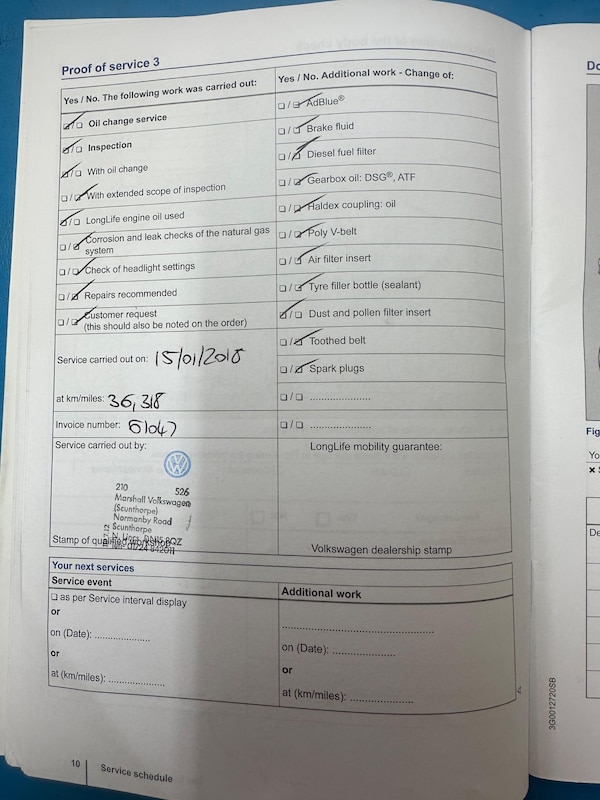 Proof of service 3
Yes / No. The following work was carried out:
☑/☐ Oil change service
☑/☐ Inspection
☑/☐ With oil change
☐/☑ With extended scope of inspection
☑/☐ LongLife engine oil used
☐/☑ Corrosion and leak checks of the natural gas
system
☐/☑ Check of headlight settings
☐/☑ Repairs recommended
☐/☑ Customer request
(this should also be noted on the order)
Service carried out on: 15/01/2018
at km/miles: 36,318
Invoice number: 61047
Service carried out by:
210 526
Marshall Volkswagen
(Scunthorpe)
Normanby Road
Scunthorpe
N. Lincs. DN15 8QZ
Stamp of qualified workshop
Yes / No. Additional work - Change of:
☐/☑ AdBlue®
☐/☑ Brake fluid
☐/☑ Diesel fuel filter
☐/☑ Gearbox oil: DSG®, ATF
☐/☑ Haldex coupling: oil
☐/☑ Poly V-belt
☐/☑ Air filter insert
☐/☑ Tyre filler bottle (sealant)
☑/☐ Dust and pollen filter insert
☐/☑ Toothed belt
☐/☑ Spark plugs
☐/☐ .....................
☐/☐ .....................
LongLife mobility guarantee:
Volkswagen dealership stamp
Your next services
Service event
☐ as per Service interval display
or
on (Date): ...................
or
at (km/miles): ...................
Additional work
....................................................
on (Date): .....................
or
at (km/miles): .....................
10 Service schedule
3G0012720SB
Do
Fig
Yo
De